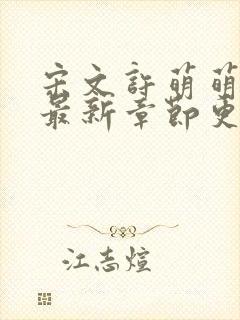 宋文許萌萌
最新章節更
江志煊